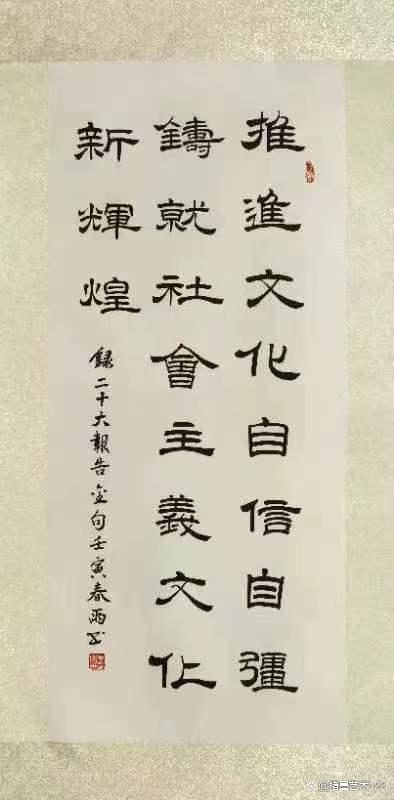 推進文化自信自彊
鑄就社會主義文化
新輝煌
錄二十大報告金句壬寅春雨書